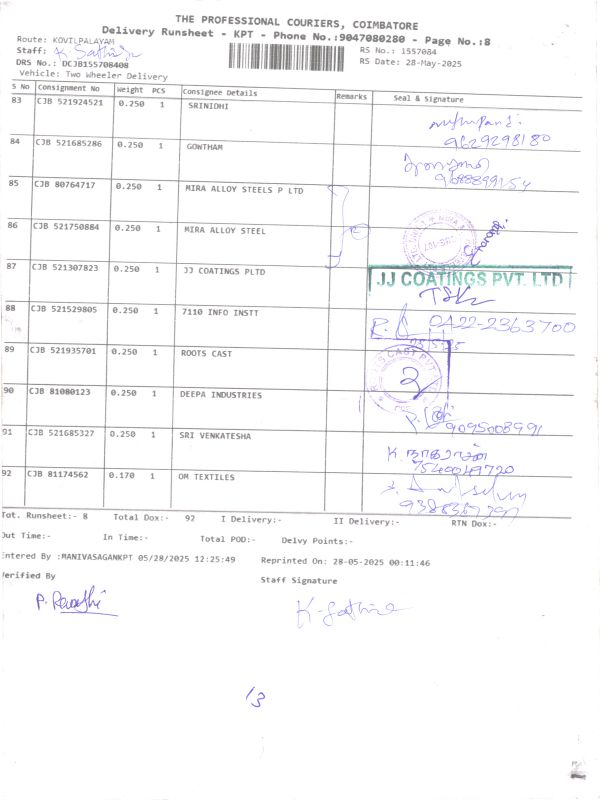 THE PROFESSIONAL COURIERS, COIMBATORE
Delivery Runsheet - KPT - Phone No.:9047080280 - Page No.:8
Route: KOVILPALAYAM
Staff:
RS No.: 1557084
DRS No.: DCJB155708408
RS Date: 28-May-2025
Vehicle: Two Wheeler Delivery
S No Consignment No Weight PCS Consignee Details Remarks Seal & Signature
83 CJB 521924521 0.250 1 SRINIDHI
9629298180
84 CJB 521685286 0.250 1 GOWTHAM
85 CJB 80764717 0.250 1 MIRA ALLOY STEELS P LTD
86 CJB 521750884 0.250 1 MIRA ALLOY STEEL
87 CJB 521307823 0.250 1 JJ COATINGS PLTD
JJ COATINGS PVT. LTD
88 CJB 521529805 0.250 1 7110 INFO INSTT
0422-2363700
89 CJB 521935701 0.250 1 ROOTS CAST
90 CJB 81080123 0.250 1 DEEPA INDUSTRIES
9095008991
91 CJB 521685327 0.250 1 SRI VENKATESHA
7540049720
92 CJB 81174562 0.170 1 OM TEXTILES
Tot. Runsheet:- 8 Total Dox:- 92 I Delivery:- II Delivery:- RTN Dox:-
Out Time:- In Time:- Total POD:- Delvy Points:-
Entered By :MANIVASAGANKPT 05/28/2025 12:25:49 Reprinted On: 28-05-2025 00:11:46
Verified By
Staff Signature
13